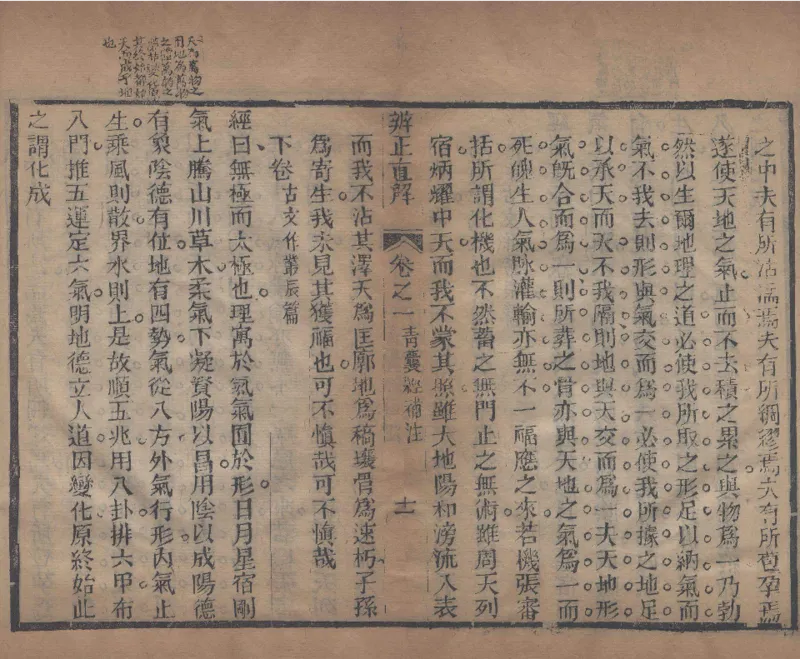 之中夫有所沾濡焉夫有所綢繆焉夫有所苞孕焉
遂使天地之氣止而不去積之累之與物爲一乃勃
然以生爾地理之道必使我所取之形足以納氣而
氣不我去則形與氣交而爲一必使我所據之地足
以承天而天不我隔則地與天交而爲一夫天地形
氣旣合而爲一則所葬之骨亦與天地之氣爲一而
死魄生人氣脉灌輸亦無不一福應之來若機張審
括所謂化機也不然蓄之無門止之無術雖周天列
宿炳耀中天而我不蒙其照雖大地陽和滂流八表
辨正直解 卷之一 青囊經補注 十一
而我不沾其澤天爲匡廓地爲稿壤骨爲速朽子孫
爲寄生我未見其獲福也可不愼哉可不愼哉
下卷 古文作叢辰篇
經曰無極而太極也理寓於氣氣囿於形日月星宿剛
氣上騰山川草木柔氣下凝資陽以昌用陰以成陽德
有象陰德有位地有四勢氣從八方外氣行形內氣止
生乘風則散界水則止是故順五兆用八卦排六甲布
八門推五運定六氣明地德立人道因變化原終始此
之謂化成